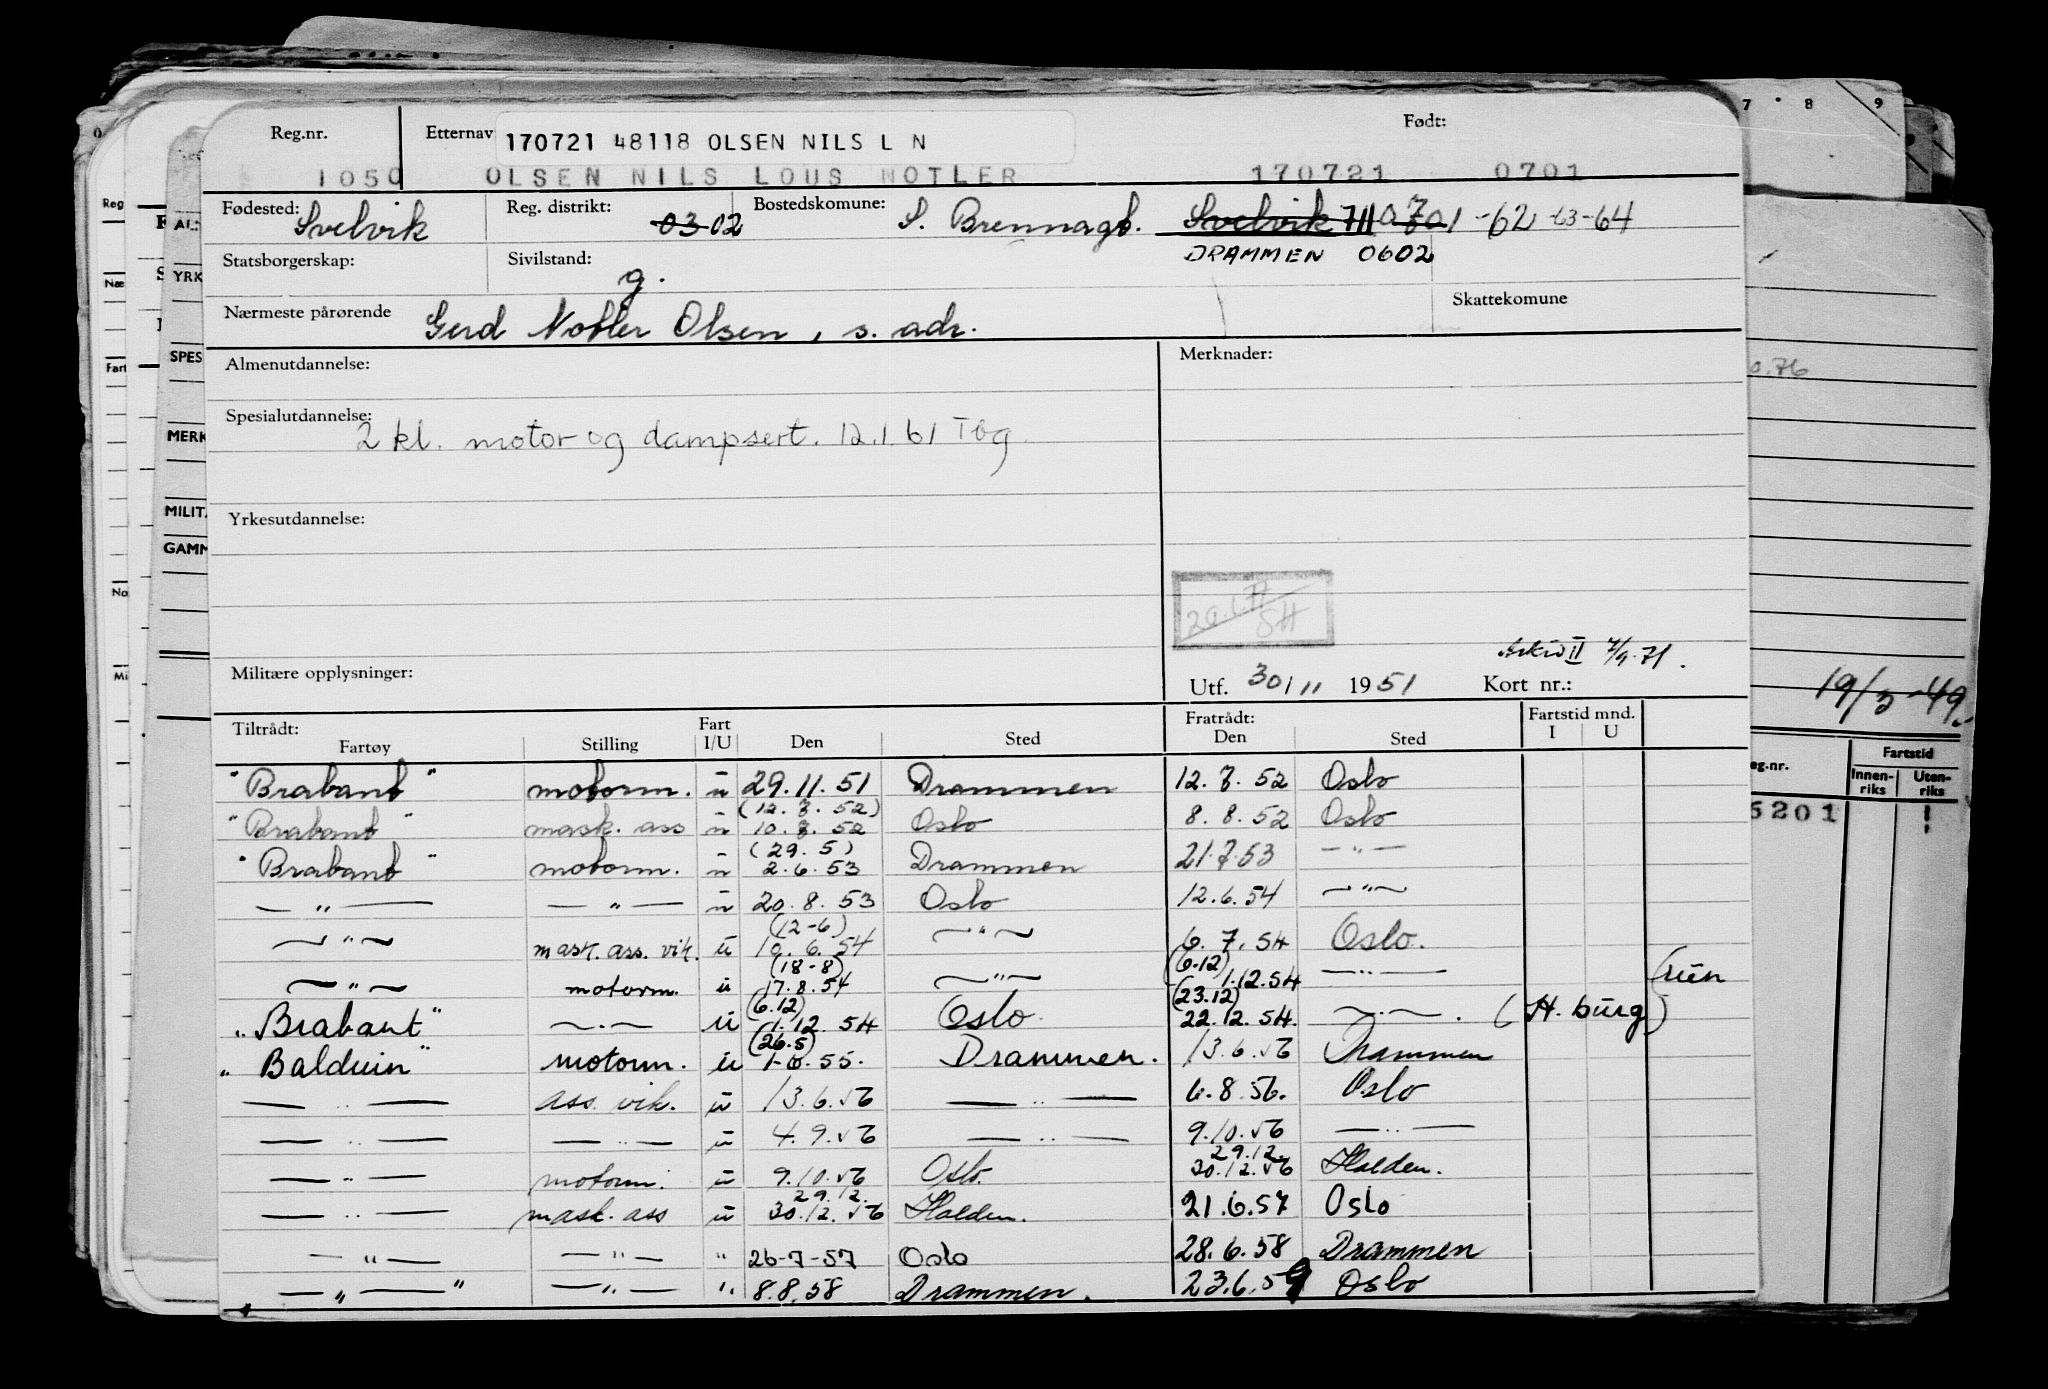 Reg.nr. Etternavn 170721 48118 OLSEN NILS L N Født:
1050 OLSEN NILS LOUS NOTLER 170721 0701
Fødested: Svelvik Reg. distrikt: 03 02 Bostedskomune: S. Brennagt. Svelvik 711 0701 -62 -63 -64
DRAMMEN 0602
Statsborgerskap: Sivilstand: g.
Nærmeste pårørende Gerd Notler Olsen, s. adr. Skattekomune
Almenutdannelse: Merknader:
Spesialutdannelse: 2 kl. motor og dampsert. 12.1.61 Tbg.
Yrkesutdannelse:
20.1.71 SH
Arkiv II 7/9.71.
Militære opplysninger: Utf. 30/11 1951 Kort nr.:
Tiltrådt: Fart Fratrådt: Fartstid mnd.
Fartøy Stilling I/U Den Sted Den Sted I U
"Brabant" motorm. u 29.11.51 Drammen 12.7.52 Oslo
(12.7.52)
"Brabant" mask. ass u 10.7.52 Oslo 8.8.52 Oslo
(29.5)
"Brabant" motorm. u 2.6.53 Drammen 21.7.53 — " —
— " — — " — u 20.8.53 Oslo 12.6.54 — " —
(12-6)
— " — mask. ass. vik. u 10.6.54 — " — 6.7.54 Oslo.
(18-8) (6.12)
— " — motorm. u 17.8.54 — " — 1.12.54 — " —
(6.12) (23.12)
"Brabant" — " — u 1.12.54 Oslo 22.12.54. — " — . (H. burg)
(26.5)
"Balduin" motorm. u 1-6.55. Drammen. 13.6.56 Drammen
— " — ass. vik. u 13.6.56 — " — 6.8.56. Oslo
— " — — " — u 4.9.56 — " — 9.10.56 — " —
29.12.
— " — motorm. u 9.10.56 Oslo. 30.12.56 Halden.
29.12.
— " — mask. ass u 30.12.56 Halden. 21.6.57 Oslo
— " — — " — " 26-7-57 Oslo 28.6.58 Drammen
— " — " — " — " 8.8.58 Drammen. 23.6.59 Oslo
7 8 9
0.76
19/3-49.
eg.nr. Fartstid
Innenriks Utenriks
5201
Reg
Næ
Fart
No
Mi
YRK
SPES
MERK
MILITÆ
GAMM